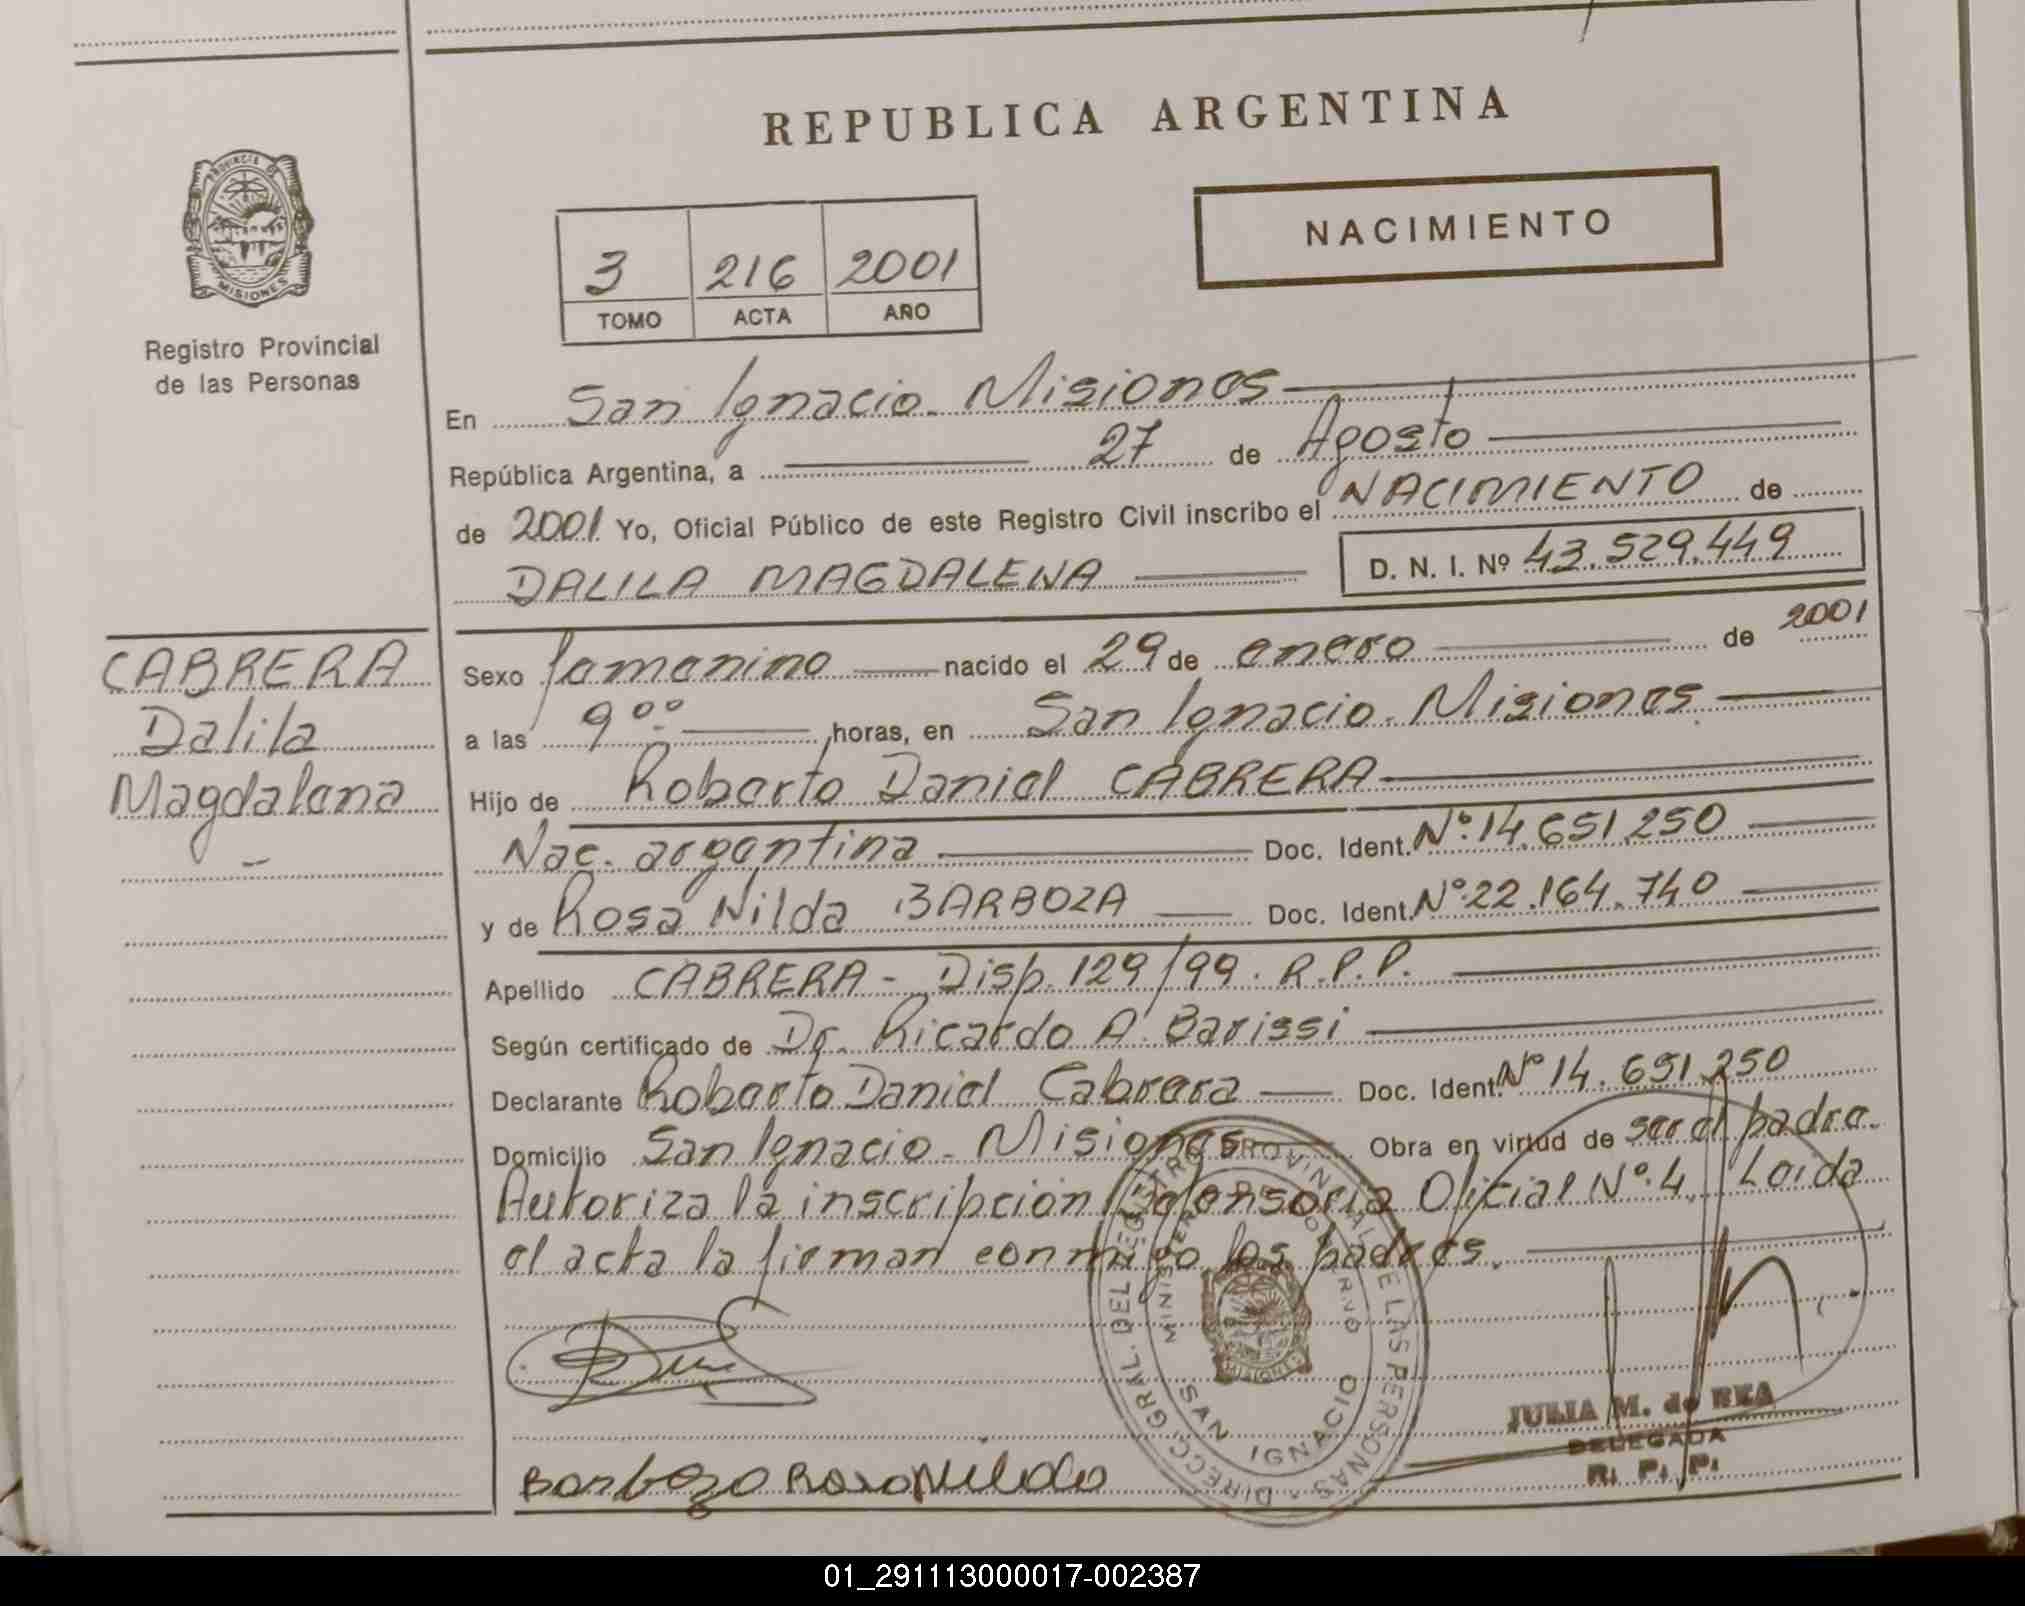 REPUBLICA ARGENTINA
PROVINCIA DE
MISIONES
Registro Provincial
de las Personas
NACIMIENTO
3 216 2001
TOMO ACTA AÑO
En San Ignacio - Misiones
República Argentina, a 27 de Agosto
de 2001 Yo, Oficial Público de este Registro Civil inscribo el NACIMIENTO de
DALILA MAGDALENA D. N. I. Nº 43.529.449
CABRERA
Dalila
Magdalena
Sexo femenino nacido el 29 de enero de 2001
a las 9 00 horas, en San Ignacio - Misiones
Hijo de Roberto Daniel CABRERA
Nac. argentina Doc. Ident. Nº 14.651.250
y de Rosa Nilda BARBOZA Doc. Ident. Nº 22.164.740
Apellido CABRERA - Disp. 129/99. R.P.P.
Según certificado de Dr. Ricardo A. Barissi
Declarante Roberto Daniel Cabrera Doc. Ident. Nº 14.651.250
Domicilio San Ignacio - Misiones Obra en virtud de ser el padre.
Autoriza la inscripción Defensoría Oficial Nº 4. Leída
el acta la firman conmigo los padres.
DIRECC. GRAL. DEL REGISTRO PROVINCIAL DE LAS PERSONAS
SAN IGNACIO
MISIONES
JULIA M. de REA
DELEGADA
R. P. P.
Barboza Rosa Nilda
01_291113000017-002387